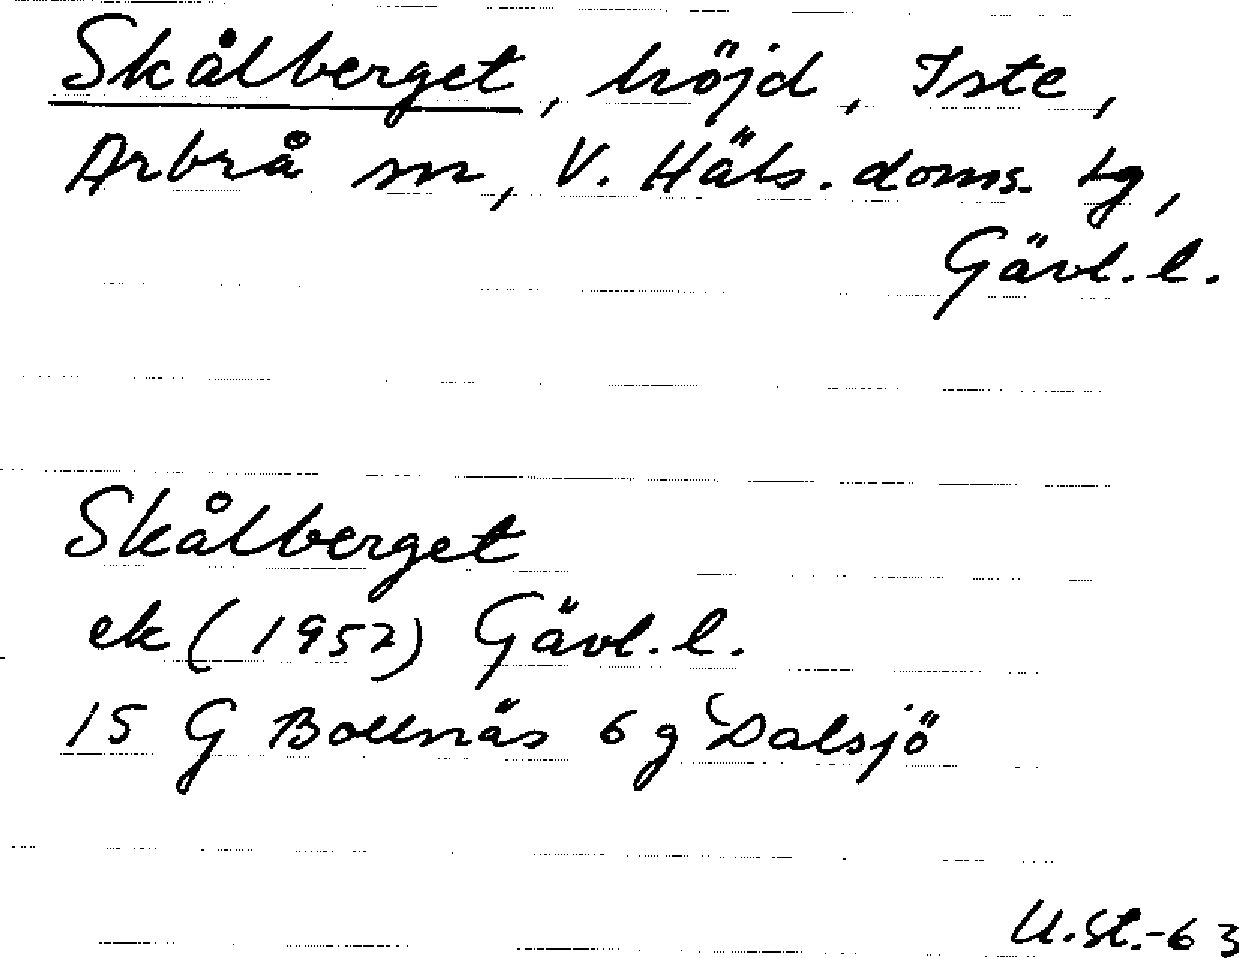 Skålberget, höjd, Iste,
Arbrå sn, V. Häls. doms. tg,
Gävl. l.
Skålberget
ek (1952) Gävl. l.
15 G Bollnäs 6 g Dalsjö
U.St.-63